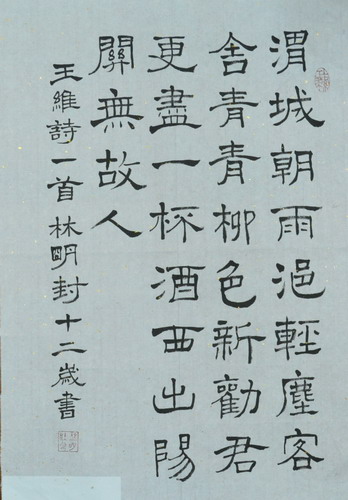 渭城朝雨浥輕塵客
舍青青柳色新勸君
更盡一杯酒西出陽
關無故人
王維詩一首林明封十二歲書